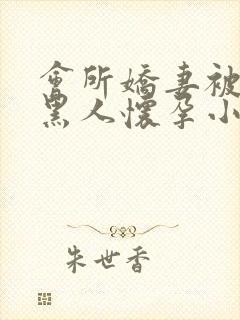 會所嬌妻被
黑人懷孕小
朱世香